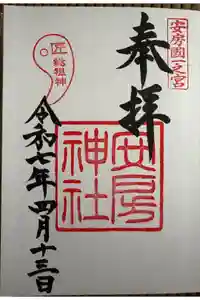 安房國一之宮
奉拝
安房神社
匠総祖神
令和七年四月十三日